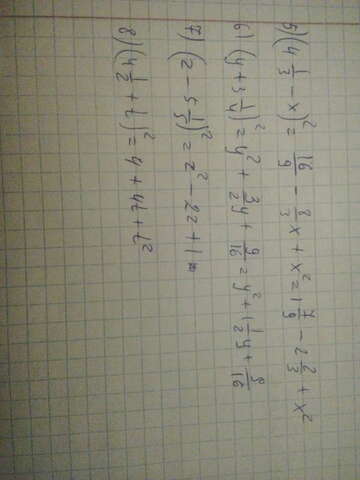 5) (4 1/3 - x)² = 16/9 - 8/3 x + x² = 1 7/9 - 2 2/3 + x²
6) (y + 3 1/4)² = y² + 3/2 y + 9/16 = y² + 1 1/2 y + 9/16
7) (z - 5 1/5)² = z² - 2z + 1 =
8) (4 1/2 + t)² = 4 + 4t + t²